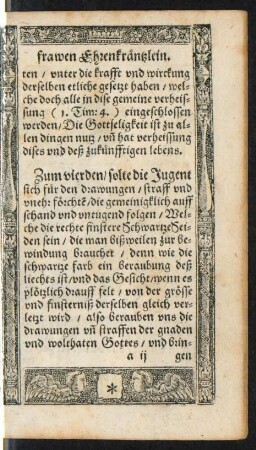 frawen Ehrenkräntzlein.
ten / vnter die krafft vnd wirckung
derselben etliche gesetzt haben / wel-
che doch alle in dise gemeine verheis-
sung ( 1. Tim: 4. ) eingeschlossen
werden / Die Gottseligkeit ist zu al-
len dingen nutz / vñ hat verheissung
dises vnd deß zukünfftigen lebens.
Zum vierden / solte die Jugent
sich für den drawungen / straff vnd
vneh: förchtẽ / die gemeinigklich auff
schand vnd vntugend folgen / Wel-
che die rechte finstere SchwartzeSei-
den sein / die man bißweilen zur be-
windung brauchet / denn wie die
schwartze farb ein beraubung deß
liechts ist / vnd das Gesicht / wenn es
plötzlich drauff felt / von der grösse
vnd finsterniß derselben gleich ver-
letzt wird / also berauben vns die
drawungen vñ straffen der gnaden
vnd wolthaten Gottes / vnd brin-
a ij gen